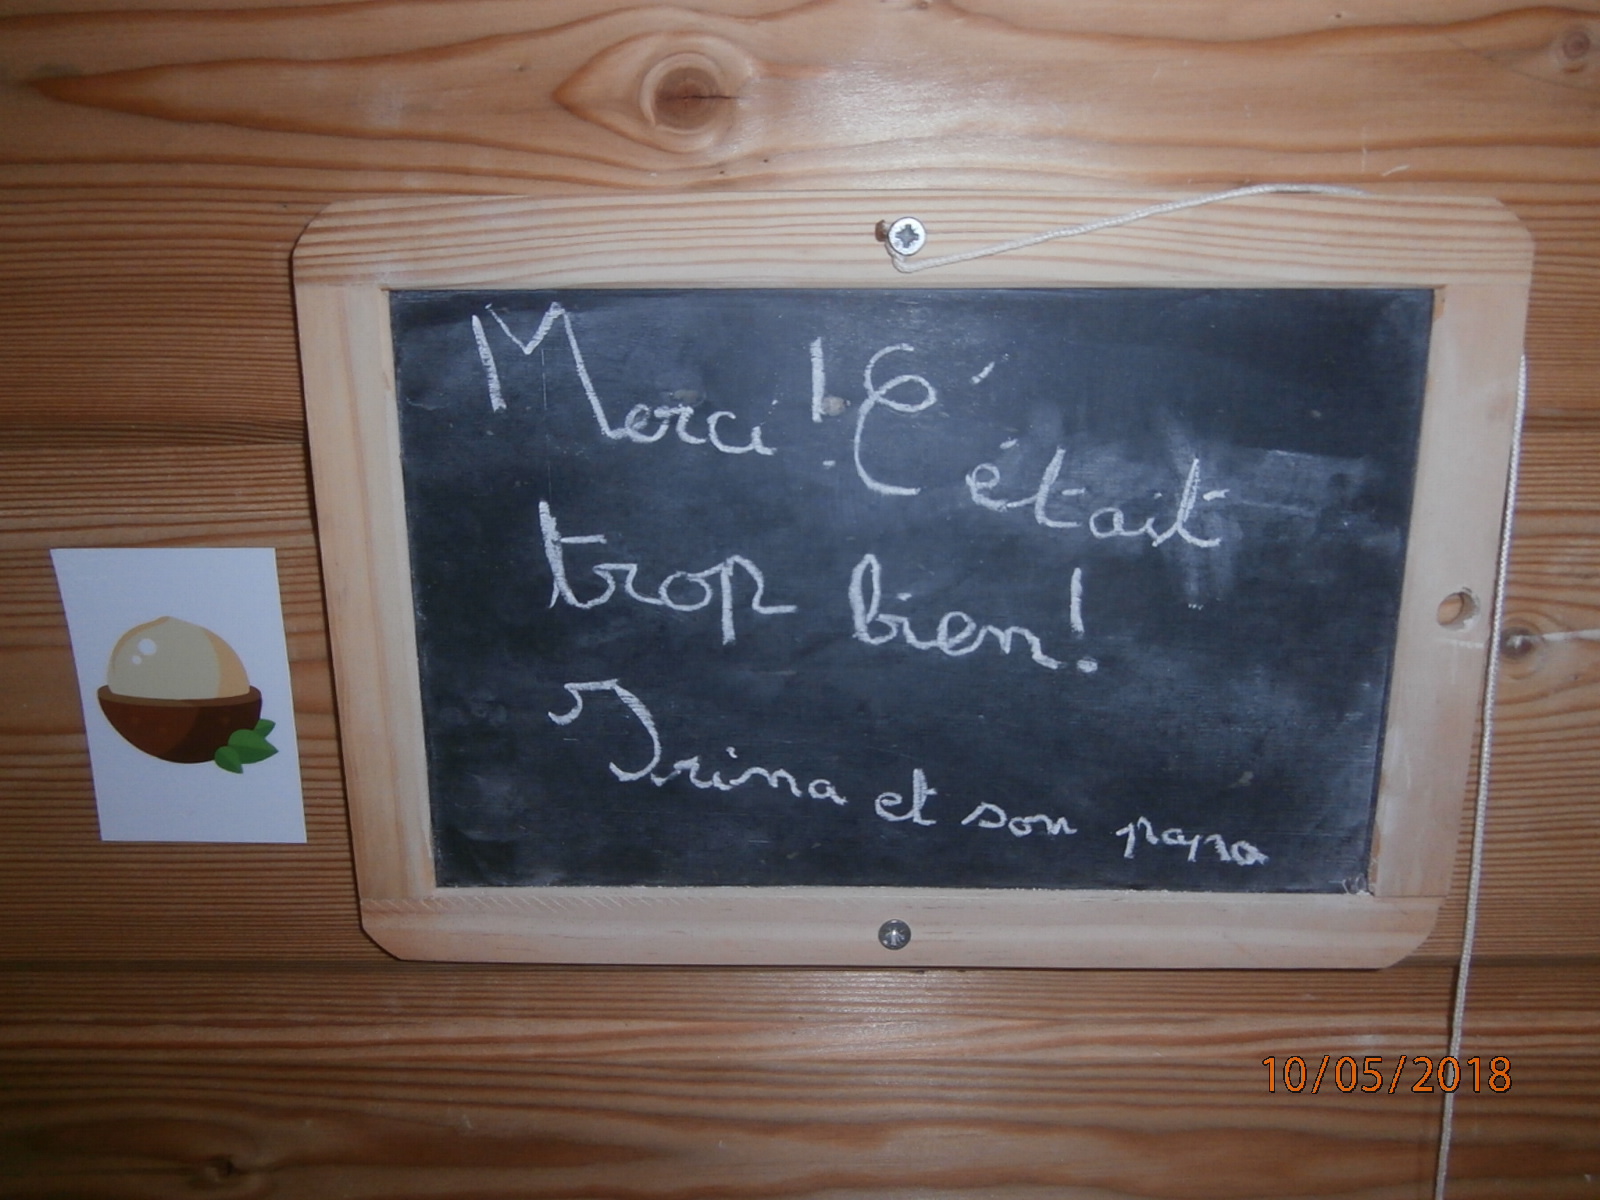 Merci ! C'était
trop bien !
Irina et son papa
10/05/2018